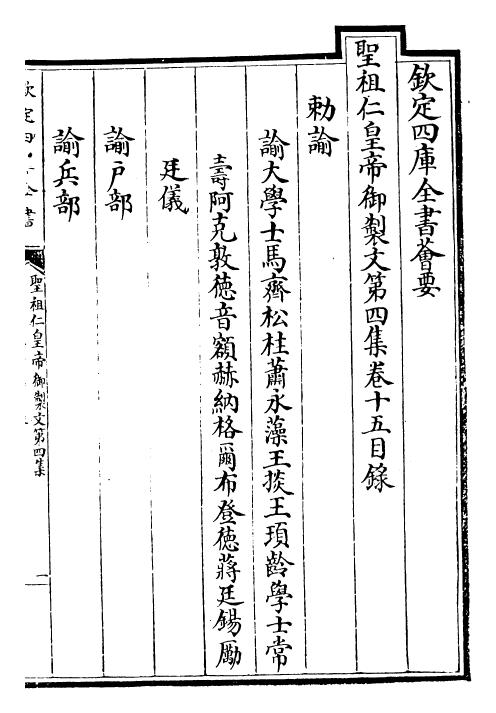 欽定四庫全書薈要
聖祖仁皇帝御製文第四集卷十五目錄
勅諭
諭大學士馬齊松柱蕭永藻王掞王頊齡學士常
壽阿克敦徳音額赫納格爾布登徳蔣廷錫勵
廷儀
諭户部
諭兵部
欽定四庫全書
聖祖仁皇帝御製文第四集
一